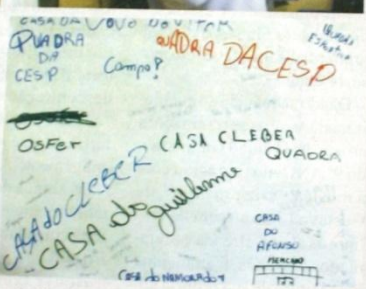 CASA DA VOVO NOVITAM
QUADRA
DA
CESP
Campo?
QUADRA DACESP
OSFER
CASA CLEBER
QUADRA
CASA do CLEBER
CASA do guilherme
CASA
DO
AFONSO
MERCADO
CASA do NAMORADO